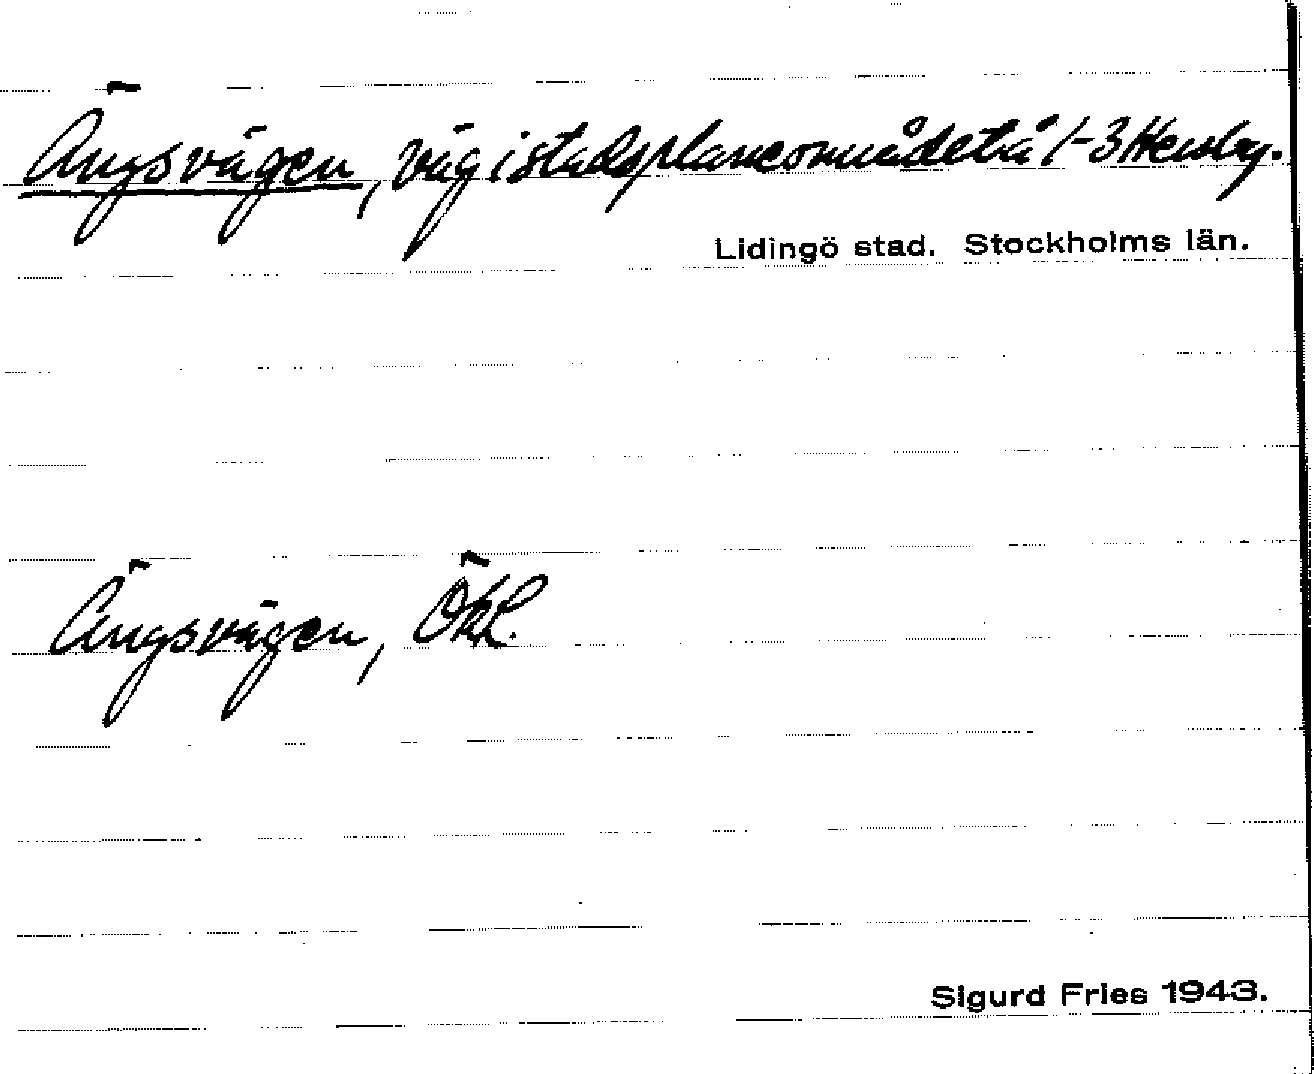 Ängsvägen, väg i stadsplaneområdet å 1-3 Hersby.
Lidingö stad. Stockholms län.
Ängsvägen, Ökl.
Sigurd Fries 1943.